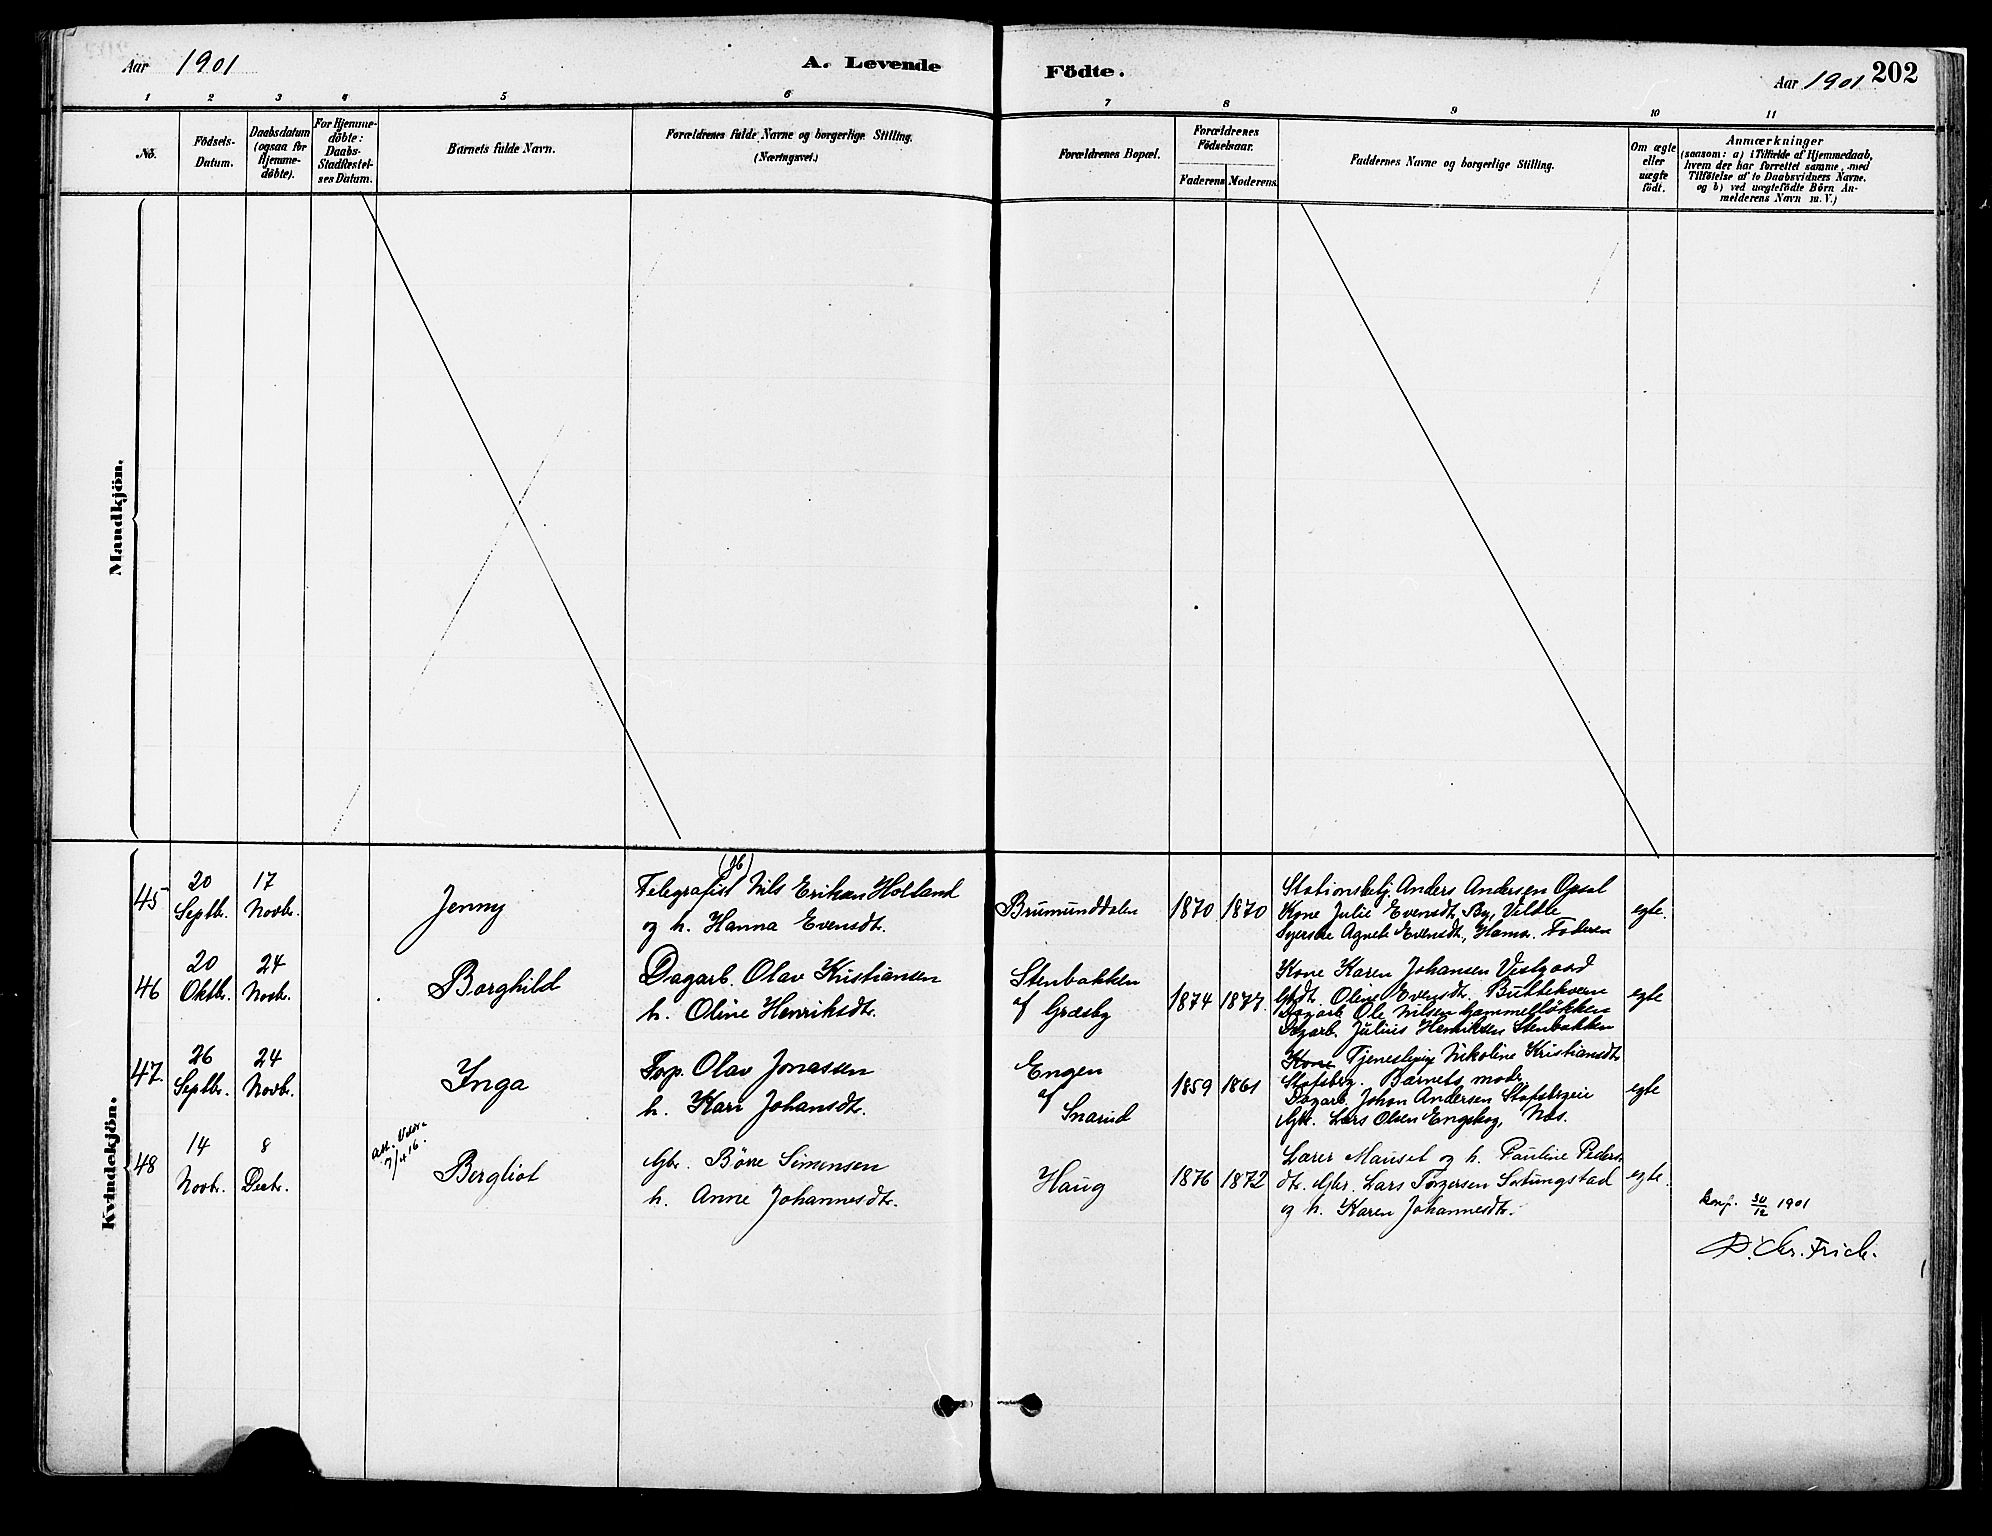 Aar 1901
A. Levende Födte.
Aar 1901 202
1 2 3 4 5 6 7 8 9 10 11
No.
Födsels-
Datum.
Daabsdatum
(ogsaa for
Hjemme-
döbte).
For Hjemme-
döbte:
Daabs-
Stadfæstel-
ses Datum.
Barnets fulde Navn.
Forældrenes fulde Navne og borgerlige Stilling.
(Næringsvei.)
Forældrenes Bopæl.
Forældrenes
Födselsaar.
Faderens Moderens
Faddernes Navne og borgerlige Stilling.
Om ægte
eller
uægte
födt.
Anmærkninger
(saasom: a) i Tilfælde af Hjemmedaab,
hvem der har forrettet samme, med
Tilföielse af to Daabsvidners Navne,
og b) ved uægtefödte Börn An-
melderens Navn m. V.)
Mandkjön.
Kvindekjön.
45
20
Septbr.
17
Novbr.
Jenny
Telegrafist Nils Eriksen Holland
og h. Hanna Evensdt.
Brumunddalen
1870 1870
Stationsbetj. Anders Andersen Opsal
Kone Julie Evensdt. By, Veldre
Syerske Agnete Evensdt, Hamar. Faderen
egte.
46
20
Oktbr.
24
Novbr.
Borghild
Dagarb. Olav Kristiansen
h. Oline Henriksdt.
Stenbakken
af Græsby
1874 1877.
Kone Karen Johansen Vestgaard
Oline Evensdt.
Dagarb. Ole Nilsen Gammelløkken
Dagarb. Julius Henriksen Stenbakken
egte
47.
26
Septbr.
24
Novbr.
Inga
Forp. Olav Jonassen
h. Kari Johansdt.
Engen
af
Snarud
1859 1861
Kone Tjenestepige Nikoline Kristiansdt
Stafsberg. Barnets moder
Dagarb. Johan Andersen
Gbr. Lars Olsen Engskog, Næs.
egte
48
14
Novbr.
8
Decbr.
Att. 7/4 16.
Bergliot
Gbr. Börre Simensen
h. Anne Johannesdt.
Haug
1876 1872
Lærer Mauset og h. Pauline Peders
dt. Gbr. Lars Torgersen
og h. Karen Johannesdt.
egte.
konf. 30/12 1901
D. Chr. Frich.